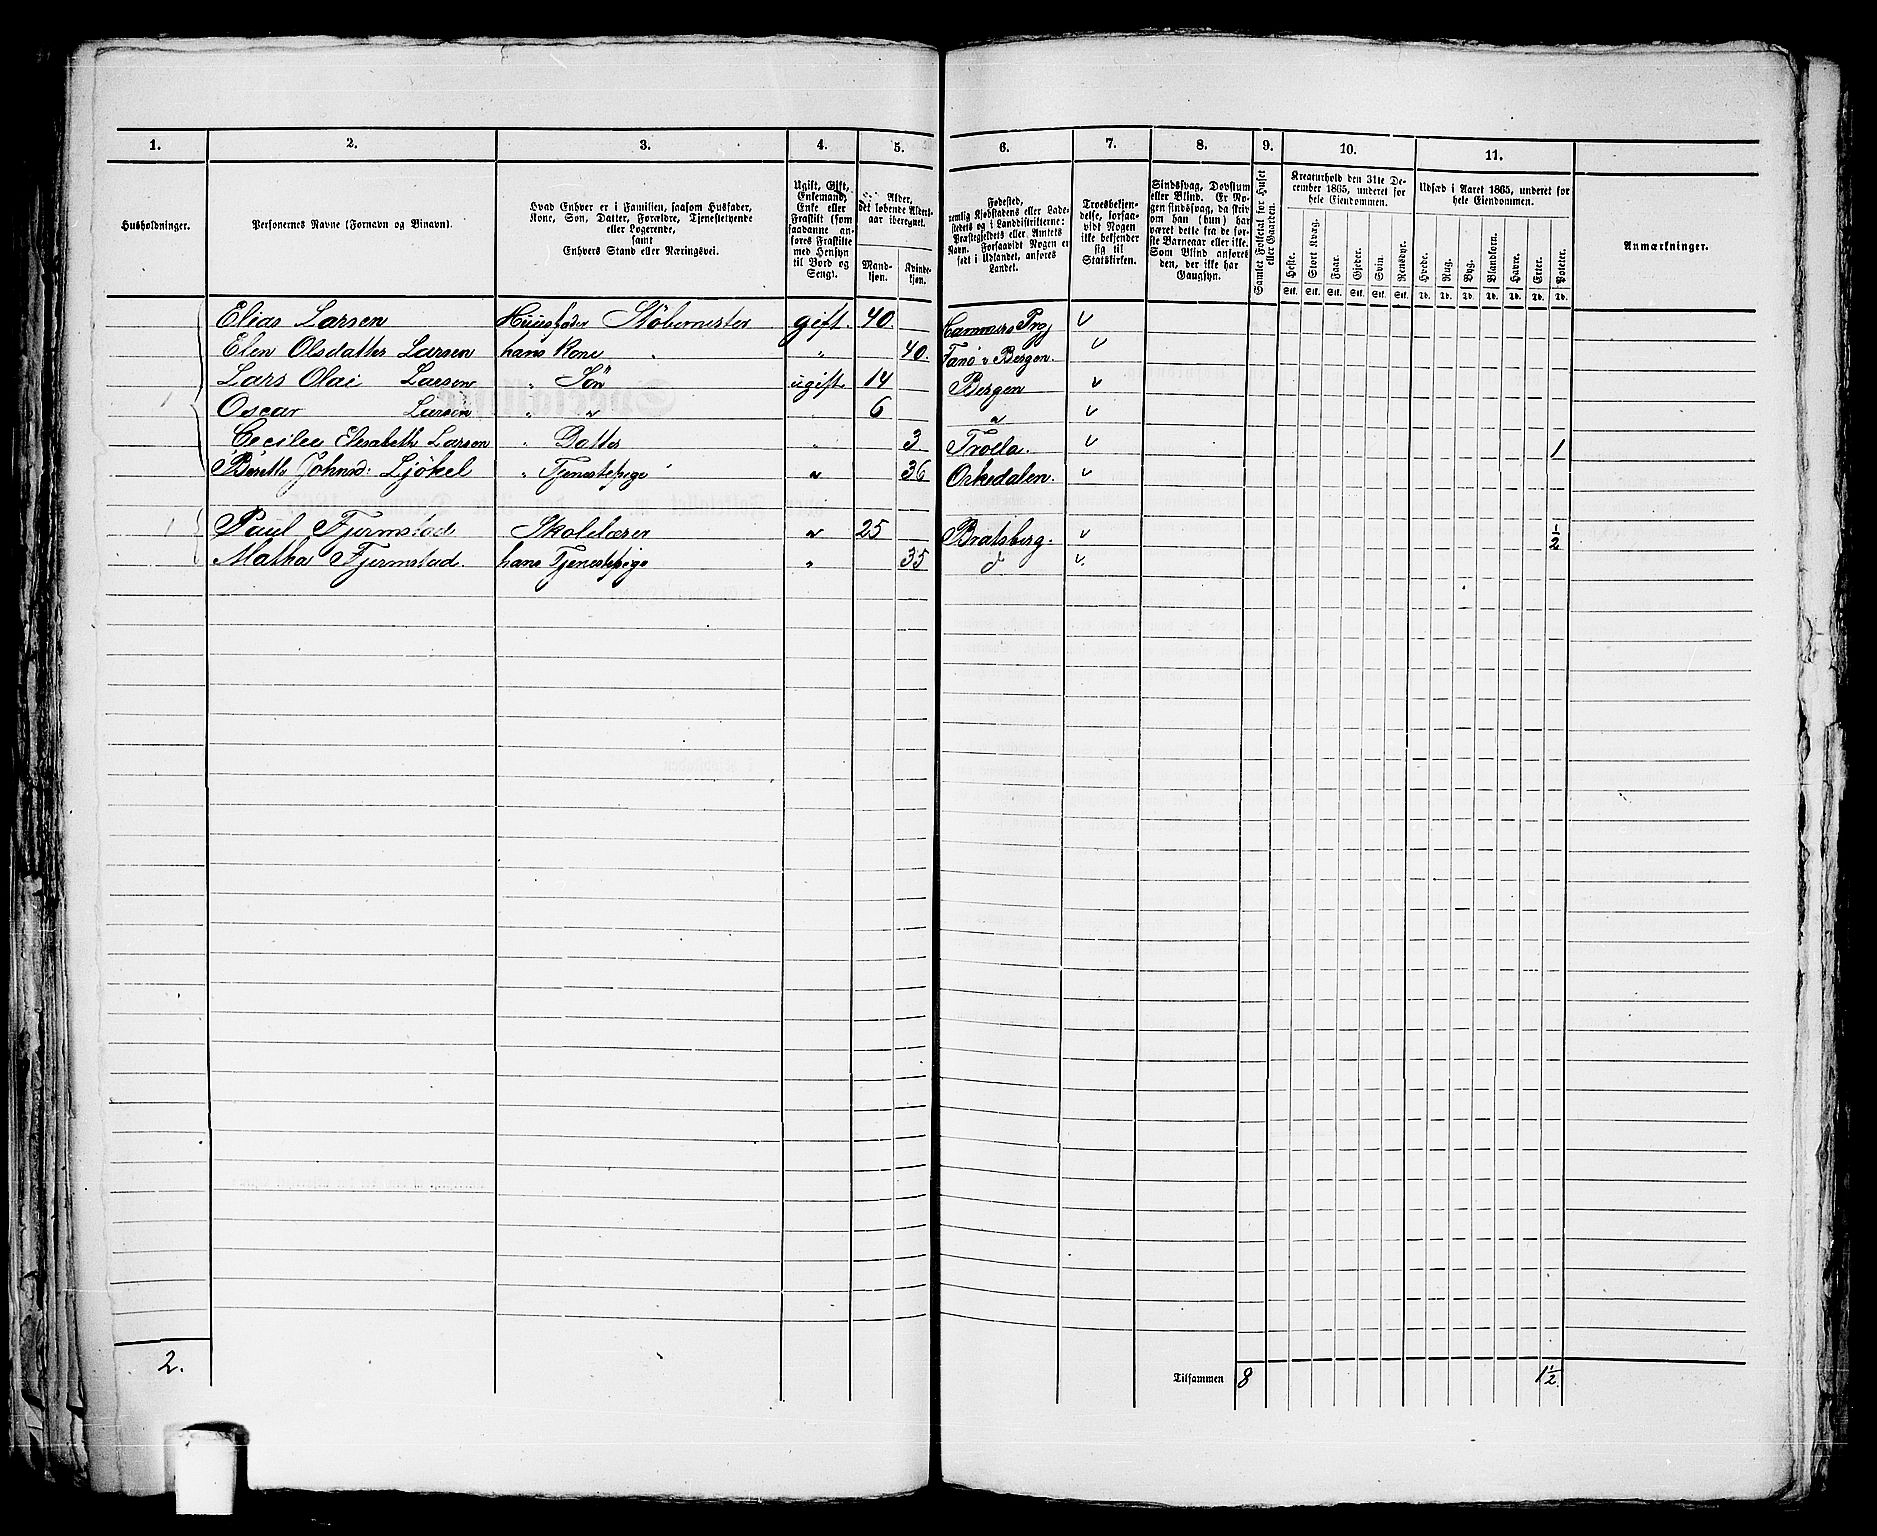 1. 2. 3. 4. 5. 6. 7. 8. 9. 10. 11.
Husholdninger.
Personernes Navne (Fornavn og Binavn).
Hvad Enhver er i Familien, saasom Husfader,
Kone, Søn, Datter, Forældre, Tjenestetyende
eller Logerende,
samt
Enhvers Stand eller Næringsvei.
Ugift, Gift,
Enkemand,
Enke eller
Fraskilt (som
saadanne an-
føres Fraskilte
med Hensyn
til Bord og
Seng).
Alder,
det løbende Alders-
aar iberegnet.
Mand-
kjøn.
Kvinde-
kjøn.
Fødested,
nemlig Kjøbstadens eller Lade-
stedets og i Landdistrikterne:
Præstegjeldets eller Amtets
Navn. Forsaavidt Nogen er
født i Udlandet, anføres
Landet.
Troesbekjen-
delse, forsaa-
vidt Nogen
ikke bekjender
sig til
Statskirken.
Sindssvag, Døvstum
eller Blind. Er No-
gen sindssvag, da skriv
om han (hun) har
været dette fra de før-
ste Barneaar eller ikke.
Som Blind anføres
den, der ikke har
Gangsyn.
Samlet Folketal for Huset
eller Gaarden.
Kreaturhold den 31te De-
cember 1865, underet for
hele Eiendommen.
Heste. Stort Kvæg. Faar. Gjeder. Svin. Rensdyr.
Stk. Stk. Stk. Stk. Stk. Stk.
Udsæd i Aaret 1865, underet for
hele Eiendommen.
Hvede. Rug. Byg. Blandkorn. Havre. Erter. Poteter.
Td. Td. Td. Td. Td. Td. Td.
Anmærkninger.
Elias Larsen Huusfader Støbemester gift. 40.
Elen Olsdatter Larsen hans Kone " 40. Fanø v Bergen.
1 Lars Olai Larsen " Søn ugift 14 Bergen
Oscar Larsen " " " 6 "
Cecilie Elisabeth Larsen " Dotter " 3 Trolla. 1
Beretta Johnsd: Ljøkel " Tjenestepige " 36 Orkedalen.
1 Paul Fjermstad Skolelærer " 25 Bratsberg. 1/2
Matha Fjermstad. hans Tjenestepige " 35 d
2. Tilsammen 8 1 1/2.